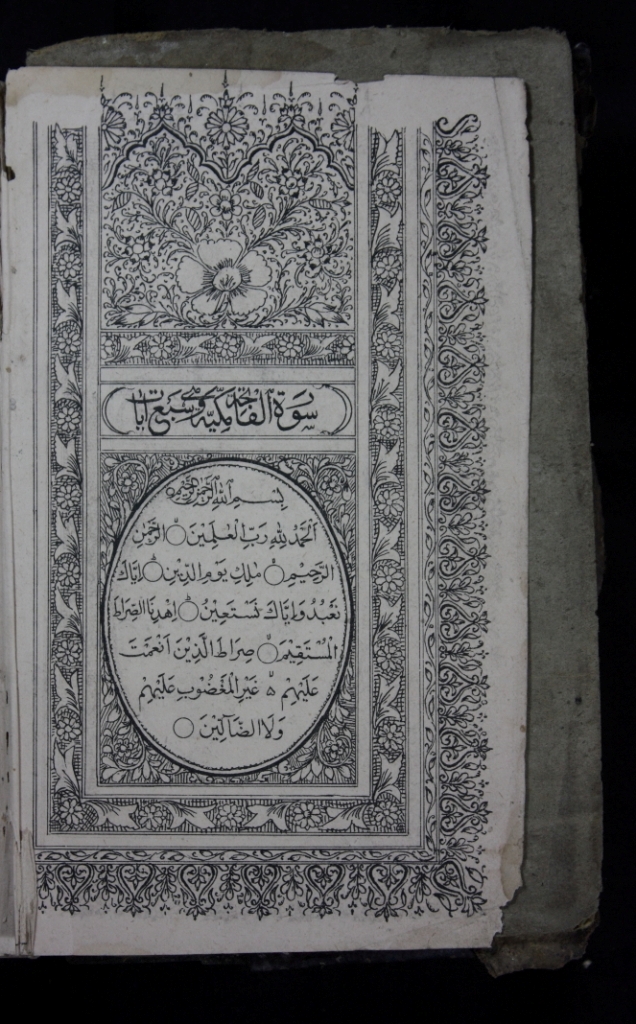 سورة الفاتحة مكية وهي سبع آيات
بِسْمِ اللهِ الرَّحْمٰنِ الرَّحِيْمِ
اَلْحَمْدُ لِلّٰهِ رَبِّ الْعٰلَمِيْنَ ۝ الرَّحْمٰنِ
الرَّحِيْمِ ۝ مٰلِكِ يَوْمِ الدِّيْنِ ۝ اِيَّاكَ
نَعْبُدُ وَاِيَّاكَ نَسْتَعِيْنُ ۝ اِهْدِنَا الصِّرَاطَ
الْمُسْتَقِيْمَ ۝ صِرَاطَ الَّذِيْنَ اَنْعَمْتَ
عَلَيْهِمْ ۵ غَيْرِ الْمَغْضُوْبِ عَلَيْهِمْ
وَلَا الضَّآلِّيْنَ ۝